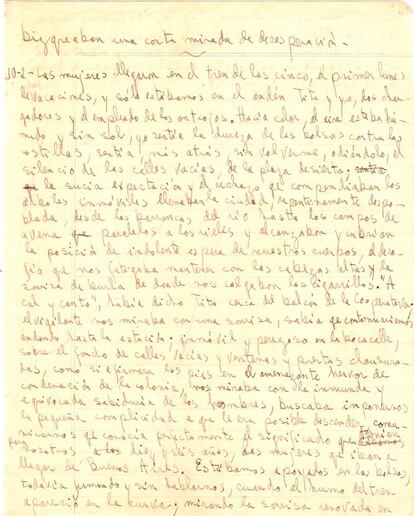 bizqueaban una corta mirada de desesperación.
10-2- Las mujeres llegaron en el tren de las cinco, el primer lunes
de vacaciones, y sólo estábamos en el andén Tito y yo, los char-
gadores y el empleado de los anteojos. Hacía calor, el aire estaba hú-
medo y sin sol, yo sentía la dureza de las bolsas contra las
costillas, sentía, más atrás, sin volverme, odiándolo, el
silencio de las calles vacías, de la plaza desierta.
la sucia expectación y el rechazo que compendiaban los
árboles inmóviles llenaban la ciudad, repentinamente despo-
blada, desde las barrancas del río hasta los campos de
avena paralelos a los rieles y alcanzaban y cubrían
la posición de indolente espera de nuestros cuerpos, el desa-
fío que nos fatigaba mantener con las cabezas altas y la
sonrisa de burla de donde nos colgaban los cigarrillos. "A
cal y canto", había dicho Tito cerca del balcón de la Cooperativa.
el vigilante nos miraba con una sonrisa, sabía que continuaríamos
andando hasta la estación; inmóvil y perezoso en la bocacalle,
sobre el fondo de calles vacías y ventanas y puertas clausura-
das, como si afirmara los pies en el amenazante hervor de
condenación de la colonia, nos miraba con la inmunda y
equivocada sabiduría de los hombres, buscaba imponernos
la pequeña complicidad a que le era posible descender, comu-
nicarnos que conocía perfectamente el significado que tenían
para nosotros a los diez y seis años, las mujeres que iban a
llegar de Buenos Aires. Estábamos apoyados en las bolsas,
todavía fumando y sin hablarnos, cuando el humo del tren
apareció en la curva; mirando la sonrisa renovada en